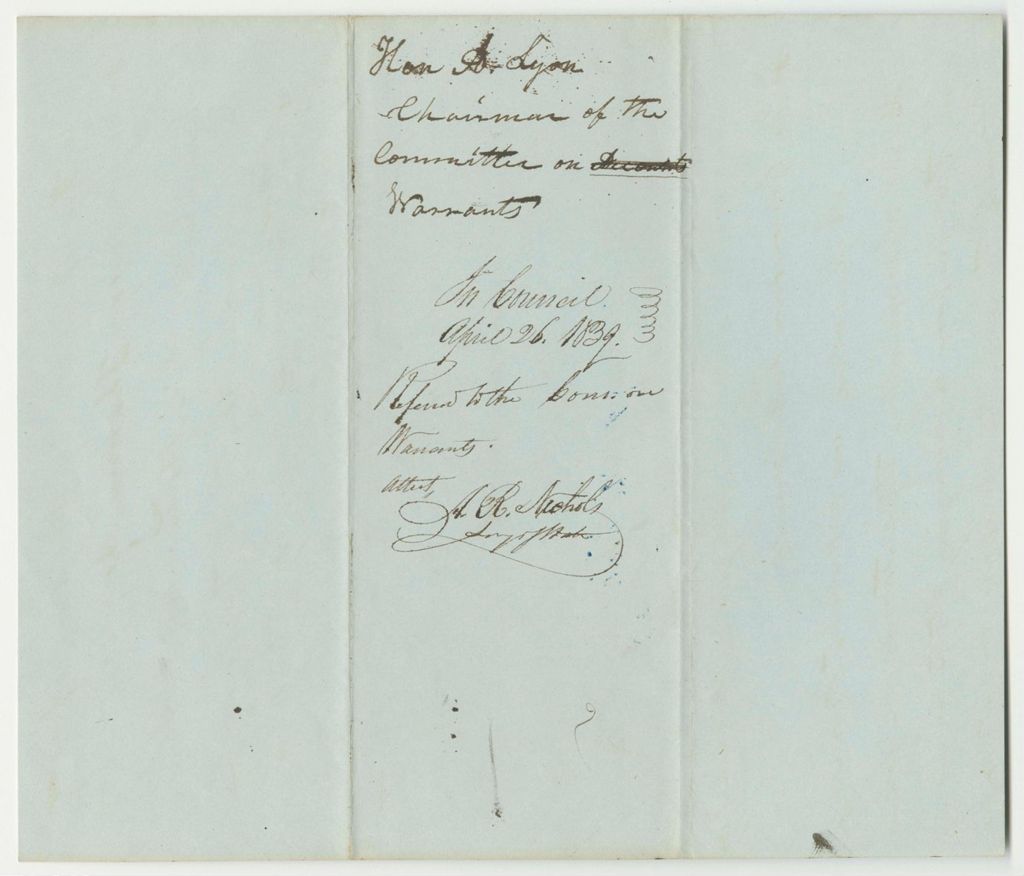 Hon A. Lyon
Chairman of the
Committee on Accounts
Warrants
In Council
April 26. 1839.
Referred to the Com: on
Warrants.
Attest,
A. R. Nichols
Secy of State